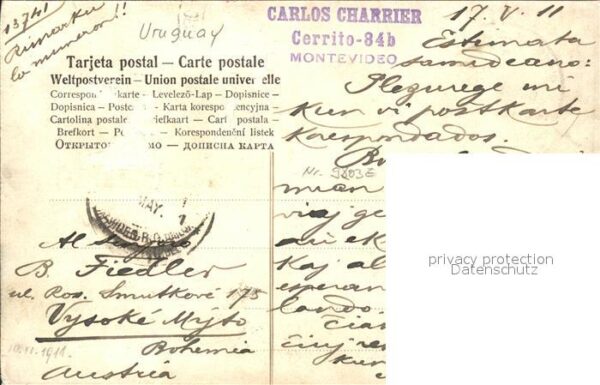 13741
Rimarku
la numeron!!
Uruguay
CARLOS CHARRIER
Cerrito-84b
MONTEVIDEO
17. V. 11
Tarjeta postal — Carte postale
Weltpostverein — Union postale unive elle
Correspon karte - Levelező-Lap - Dopisnice -
Dopisnica - Poste - Karta korespon cyjna -
Cartolina postale riefkaart - Carț postala -
Brefkort - Po - Korespondenční lístek
ОТКРЫТО МО — ДОПИСНА КАРТА
Estimata
samideano:
Plezurege mi
kun vi postkarte
korespondados.
Nr. 9803E
mian
viaj ge
aŭ ek
kaj al
esperan
lando.
ĉiuj re
kun
MAY.
Al sinjoro
B. Fiedler
ul. Ros. Smutkové 175
Vysoké Mýto
Bohemia
Austria
10.VI.1911.
privacy protection
Datenschutz